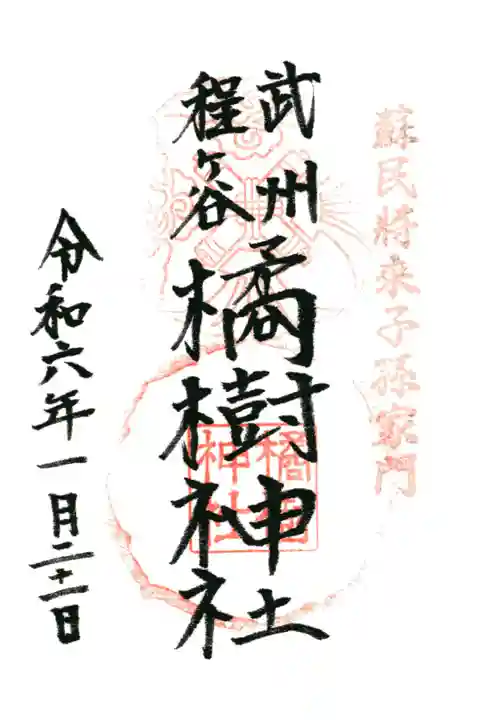 蘇民將来子孫家門
武州
程ヶ谷
橘樹神社
橘樹
神社
令和六年一月二十一日